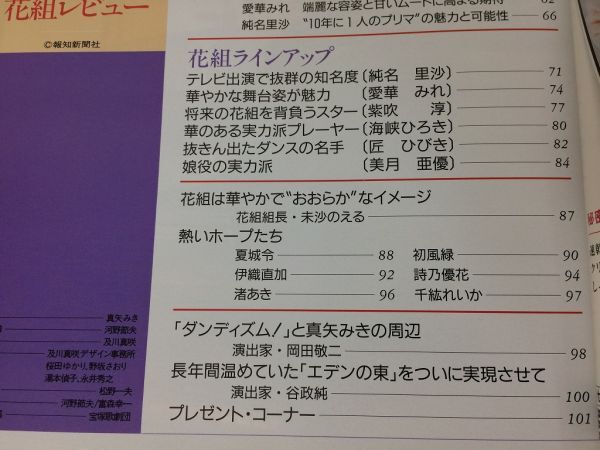 花組レビュー
©報知新聞社
愛華みれ 端麗な容姿と甘いムードに高まる期待 62
純名里沙 "10年に1人のプリマ"の魅力と可能性 66
花組ラインアップ
テレビ出演で抜群の知名度〔純名 里沙〕 71
華やかな舞台姿が魅力〔愛華 みれ〕 74
将来の花組を背負うスター〔紫吹 淳〕 77
華のある実力派プレーヤー〔海峡ひろき〕 80
抜きん出たダンスの名手〔匠 ひびき〕 82
娘役の実力派〔美月 亜優〕 84
花組は華やかで"おおらか"なイメージ
花組組長・未沙のえる 87
熱いホープたち
夏城令 88 初風緑 90
伊織直加 92 詩乃優花 94
渚あき 96 千紘れいか 97
「ダンディズム!」と真矢みきの周辺
演出家・岡田敬二 98
長年間温めていた「エデンの東」をついに実現させて
演出家・谷正純 100
プレゼント・コーナー 101
真矢みき
河野節夫
及川真咲
及川真咲デザイン事務所
桜田ゆかり,野坂さおり
湯本偵子,永井秀之
松野一夫
河野節夫/富森幸一
宝塚歌劇団